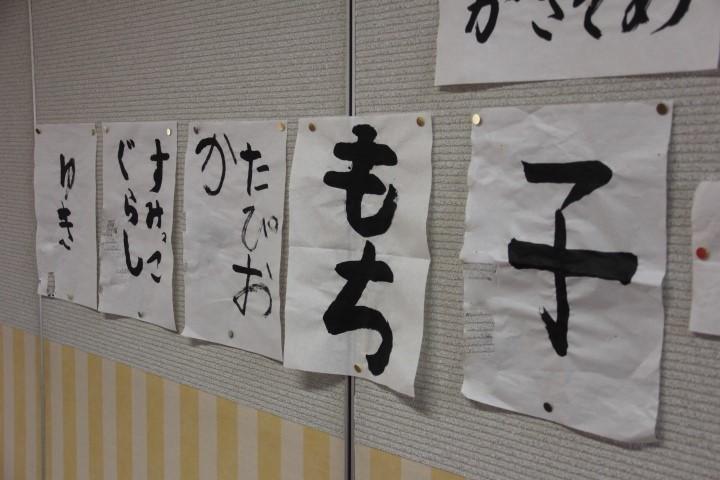 かきぞめ
子
もち
たぴお
か
すみっこ
ぐらし
ゆき